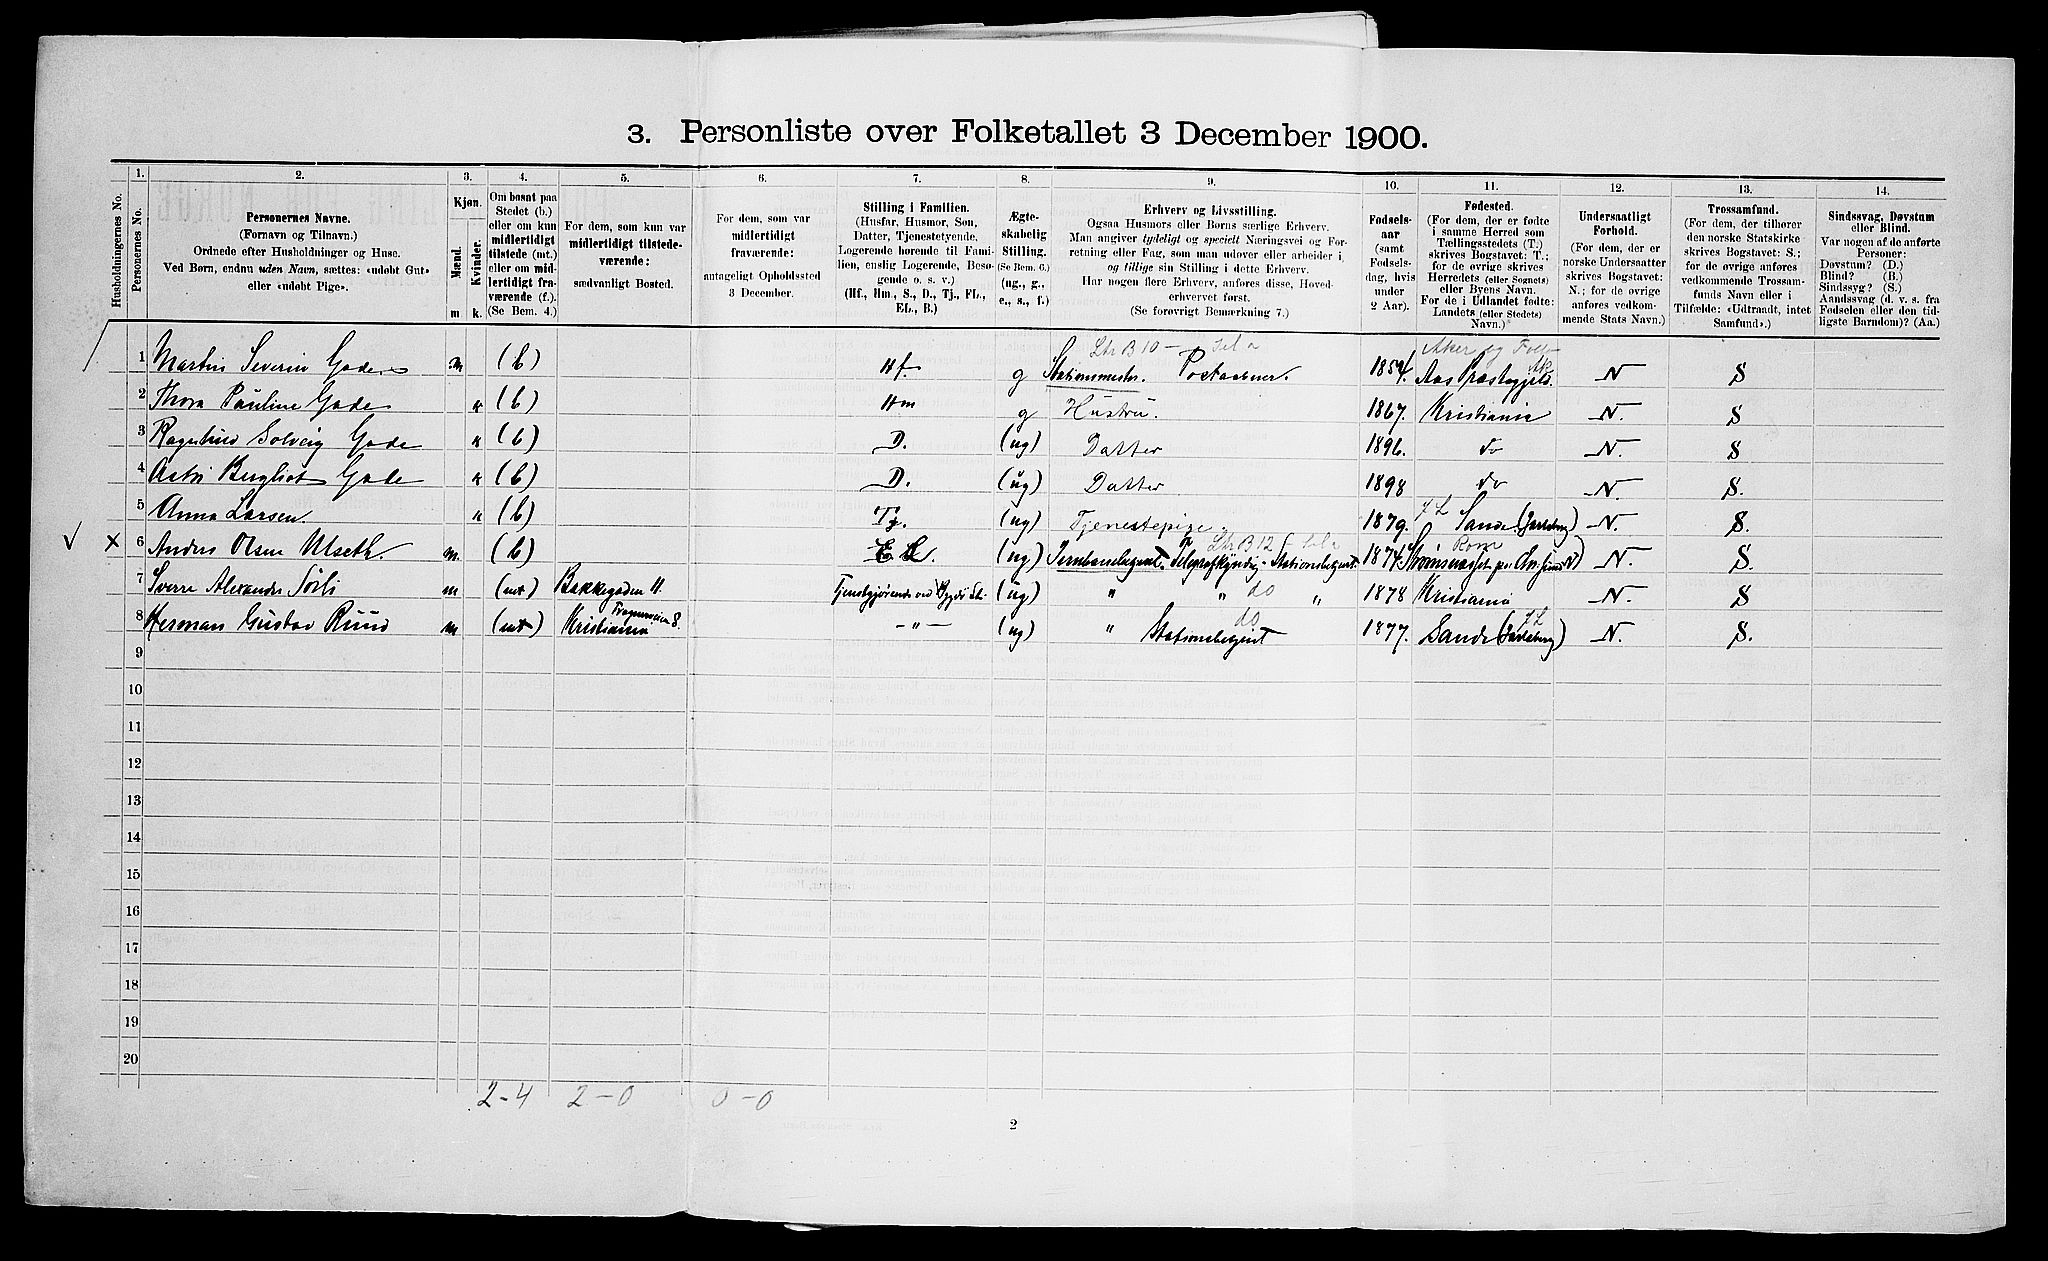 3. Personliste over Folketallet 3 December 1900.
Husholdningernes No.
1.
Personernes No.
2.
Personernes Navne.
(Fornavn og Tilnavn.)
Ordnede efter Husholdninger og Huse.
Ved Børn, endnu uden Navn, sættes: «udøbt Gut»
eller «udøbt Pige».
3.
Kjøn.
Mænd.
Kvinder.
m k.
4.
Om bosat paa
Stedet (b.)
eller om kun
midlertidigt
tilstede (mt.)
eller om mid-
lertidigt fra-
værende (f.).
(Se Bem. 4.)
5.
For dem, som kun var
midlertidigt tilstede-
værende:
sædvanligt Bosted.
6.
For dem, som var
midlertidigt
fraværende:
antageligt Opholdssted
3 December.
7.
Stilling i Familien.
(Husfar, Husmor, Søn,
Datter, Tjenestetyende,
Logerende hørende til Fami-
lien, enslig Logerende, Besø-
gende o. s. v.)
(Hf., Hm., S., D., Tj., FL.,
EL., B.)
8.
Ægte-
skabelig
Stilling.
(Se Bem. 6.)
(ug., g.,
e., s., f.)
9.
Erhverv og Livsstilling.
Ogsaa Husmors eller Børns særlige Erhverv.
Man angiver tydeligt og specielt Næringsvei og For-
retning eller Fag, som man udover eller arbeider i,
og tillige sin Stilling i dette Erhverv.
Har nogen flere Erhverv, anføres disse, Hoved-
erhvervet først.
(Se forøvrigt Bemærkning 7.)
10.
Fødsels-
aar
(samt
Fødsels-
dag, hvis
under
2 Aar).
11.
Fødested.
(For dem, der er fødte
i samme Herred som
Tællingsstedets (T.)
skrives Bogstavet: T.;
for de øvrige skrives
Herredets (eller Sognets)
eller Byens Navn.
For de i Udlandet fødte:
Landets (eller Stedets)
Navn.)
12.
Undersaatligt
Forhold.
(For dem, der er
norske Undersaatter
skrives Bogstavet:
N.; for de øvrige
anføres vedkom-
mende Stats Navn.)
13.
Trossamfund.
(For dem, der tilhører
den norske Statskirke
skrives Bogstavet: S.;
for de øvrige anføres
vedkommende Trossam-
funds Navn eller i
Tilfælde: «Udtraadt, intet
Samfund».)
14.
Sindssvag, Døvstum
eller Blind.
Var nogen af de anførte
Personer:
Døvstum? (D.)
Blind? (B.)
Sindssyg? (S.)
Aandssvag (d. v. s. fra
Fødselen eller den tid-
ligste Barndom)? (Aa.)
Aker og Follo
1 Martin Severin Gade m (b) Hf. g Stationsmester. Postaabner. 1854. Aas Præstegjeld. N S
2 Thora Pauline Gade k (b) Hm g Hustru. 1867. Kristiania N. S
3 Ragnhild Solveig Gade k (b) D. (ug) Datter 1896. do N. S
4 Astri Bergliot Gade k (b) D. (ug) Datter 1898 do N. S.
5 Anna Larsen. k (b) Tj. (ug) Tjenestepige. 1879. JL Sande (Jarlsberg) N. S.
Ltr B 12
√ x 6 Anders Olsen Ulseth m. (b) E L. (ug) Jernbanebetjent. Telegrafkyndig Stationsbetjent. 1874. N. S.
7 Sverre Alexander Sørli m (mt) Bakkegaden 11. (ug) " do " 1878 Kristiania N. S
8 Herman Gustav Ruud m (mt) Kristiania Fragnerveien 8. — " — (ug) " do Stationsbetjent 1877. JL Sande (Jarlsberg) N. S.
9
10
11
12
13
14
15
16
17
18
19
20
2-4 2-0 0-0
2